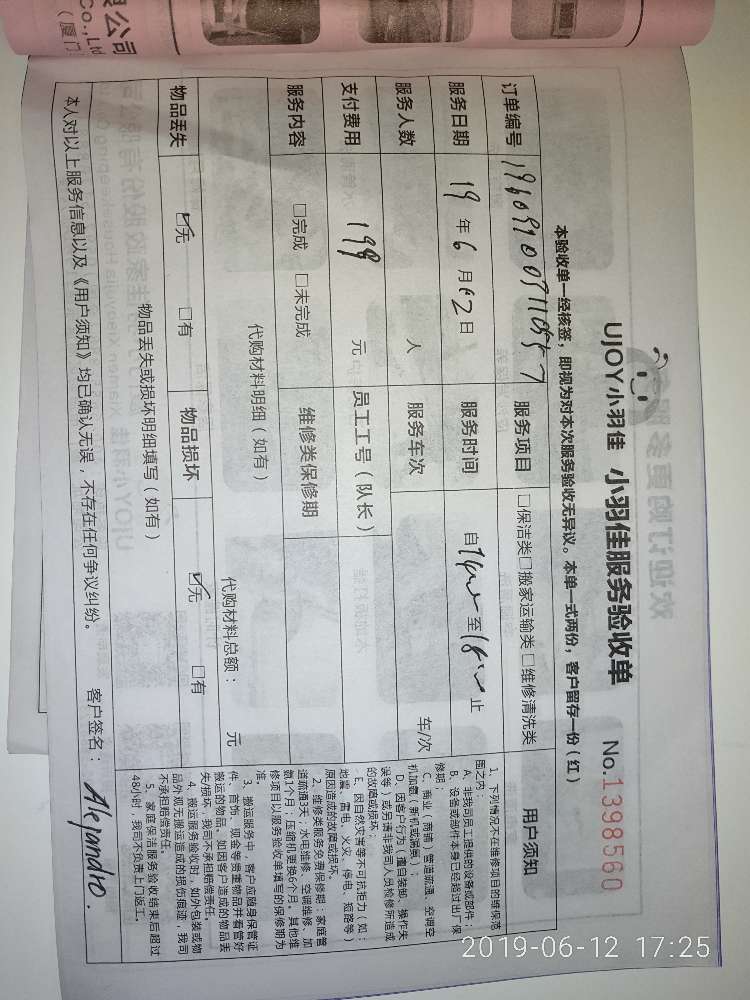 UJOY小羽佳 小羽佳服务验收单
No.1398560
本验收单一经核签，即视为对本次服务验收无异议。本单一式两份，客户留存一份（红）
订单编号
服务项目 □保洁类□搬家运输类□维修清洗类
服务日期 19年6月12日
服务时间 自14:00至18:00止
服务人数 人
服务车次 车/次
支付费用 199 元
员工工号（队长）
服务内容 □完成 □未完成
维修类保修期
代购材料明细（如有）
代购材料总额： 元
物品丢失 ☑无 □有
物品损坏 ☑无 □有
物品丢失或损坏明细填写（如有）
本人对以上服务信息以及《用户须知》均已确认无误，不存在任何争议纠纷。
客户签名：Alejandro.
用户须知
1、下列情况不在维修项目的维保范
围之内：
A、非我司员工提供的设备或部件；
B、设备或部件本身已经超过出厂保
修期；
C、商业（商铺）管道疏通、空调空
机加氨（新机或漏氨）；
D、因客户行为（擅自装卸、操作失
误等）或另请非我司人员检修所造成
的故障或损坏；
E、因自然灾害等不可抗拒力（如：
地震、雷电、火灾、停电、短路等）
原因造成的故障或损坏。
2、维修类服务免费保修期：家庭管
道疏通3天；水电维修、空调维修、加
氨1个月；压缩机更换6个月。其他维
修项目以服务验收单填写的保修期为
准。
3、搬运服务中，客户应随身保管证
件、首饰、现金等贵重物品并看管好
搬运的物品。如因客户造成的物品丢
失/损坏，我司不承担赔偿责任。
4、搬运服务验收时，如外包装或物
品外观无搬运造成的损伤痕迹，我司
不承担赔偿责任。
5、家庭保洁服务验收结束后超过
48小时，我司不负责上门返工。
限公司
Co.,Ltd
（厦门
2019-06-12 17:25